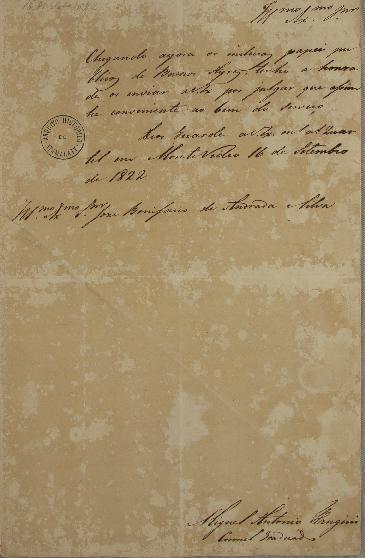 Illmo Exmo Snr
Chegando agora os incluzos papeis pu
blicos de Buenos Ayres, tenho a honra
de os enviar a V. Ex. por julgar que assim
he conveniente ao bem do serviço
Deos Guarde a V. Ex. Quar
tel em Monte Video 16 de Setembro
de 1822
Illmo Exmo Snr Joze Bonifacio de Andrada e Silva
Miguel Antonio
Coronel Graduado